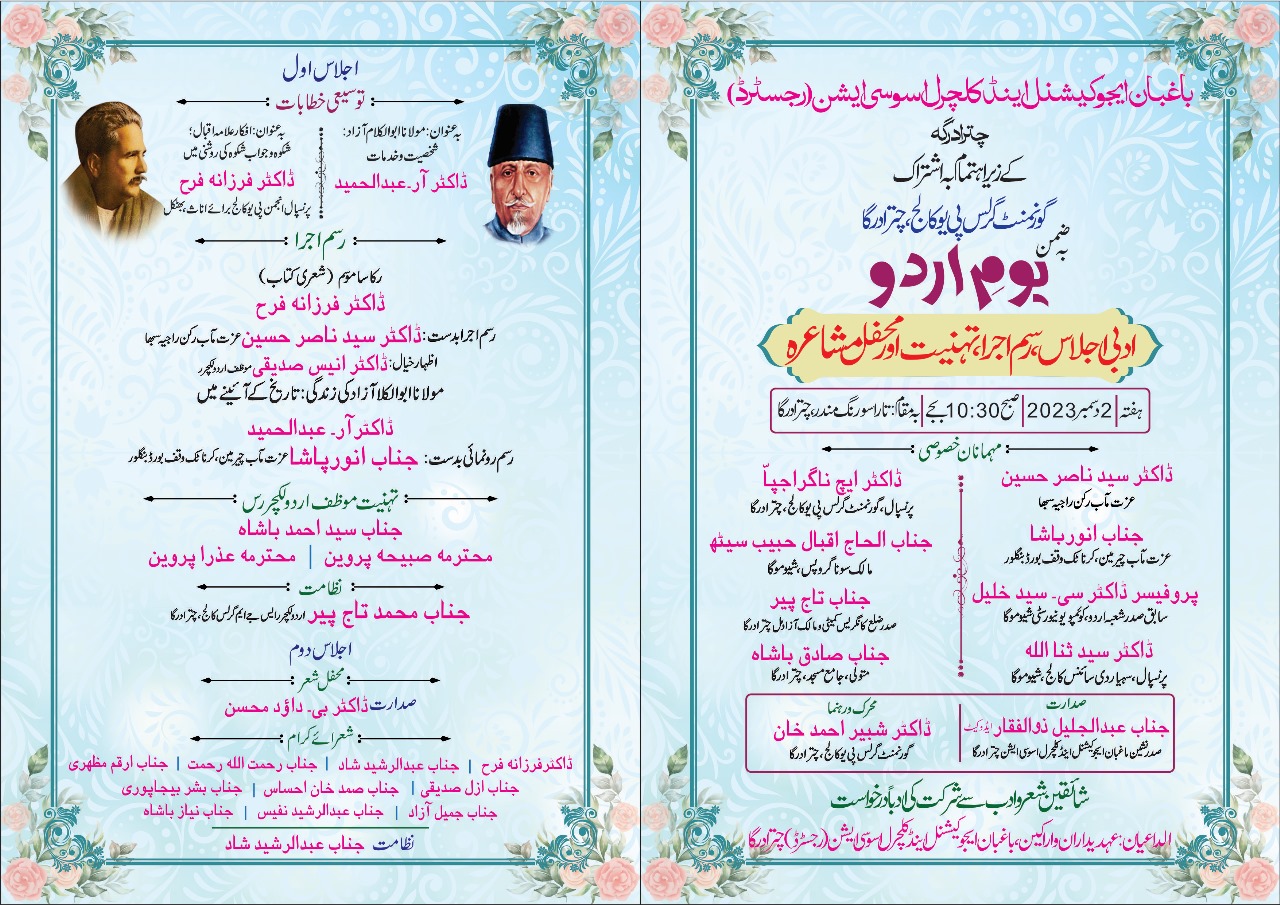 باغبان ایجوکیشنل اینڈ کلچرل اسوسی ایشن (رجسٹرڈ)
چترادرگہ
کے زیر اہتمام بہ اشتراک
گورنمنٹ گرلس پی یو کالج، چترادرگا
بہ ضمن
یومِ اردو
ادبی اجلاس، رسم اجرا، تہنیت اور محفل مشاعرہ
ہفتہ | 2 دسمبر 2023 | صبح 10:30 بجے | بہ مقام: تاراسو رنگ مندر، چترادرگا
مہمانان خصوصی
ڈاکٹر سید ناصر حسین
عزت مآب رکن راجیہ سبھا
جناب انور باشا
عزت مآب چیرمین، کرناٹک وقف بورڈ بنگلور
پروفیسر ڈاکٹر سی۔ سید خلیل
سابق صدر شعبہ اردو، کوئمپو یونیورسٹی شیوموگا
ڈاکٹر سید ثنا اللہ
پرنسپال، سہیادری سائنس کالج، شیوموگا
ڈاکٹر ایچ ناگراجپاّ
پرنسپال، گورنمنٹ گرلس پی یو کالج، چترادرگا
جناب الحاج اقبال حبیب سیٹھ
مالک سونا گروپس، شیوموگا
جناب تاج پیر
صدر ضلع کانگریس کمیٹی و مالک آزاد مل چترادرگا
جناب صادق باشاہ
متولی، جامع مسجد، چترادرگا
صدارت
جناب عبدالجلیل ذوالفقار ایڈوکیٹ
صدر نشین باغبان ایجوکیشنل اینڈ کلچرل اسوسی ایشن چترادرگا
محرک و رہنما
ڈاکٹر شبیر احمد خان
گورنمنٹ گرلس پی یو کالج، چترادرگا
شائقین شعر و ادب سے شرکت کی ادباً درخواست
الداعیان: عہدیداران و اراکین، باغبان ایجوکیشنل اینڈ کلچرل اسوسی ایشن (رجسٹرڈ) چترادرگا
اجلاس اول
توسیعی خطابات
بہ عنوان: مولانا ابوالکلام آزاد:
شخصیت و خدمات
ڈاکٹر آر۔ عبدالحمید
بہ عنوان: افکار علامہ اقبال؛
شکوہ و جواب شکوہ کی روشنی میں
ڈاکٹر فرزانہ فرح
پرنسپال انجمن پی یو کالج برائے اناث، بھٹکل
رسم اجرا
رکاساموٗم (شعری کتاب)
ڈاکٹر فرزانہ فرح
رسم اجرا بدست: ڈاکٹر سید ناصر حسین عزت مآب رکن راجیہ سبھا
اظہار خیال: ڈاکٹر انیس صدیقی موظف اردو لکچرر
مولانا ابوالکلا آزاد کی زندگی: تاریخ کے آئینے میں
ڈاکٹر آر۔ عبدالحمید
رسم رونمائی بدست: جناب انور پاشا عزت مآب چیرمین، کرناٹک وقف بورڈ بنگلور
تہنیت موظف اردو لکچررس
جناب سید احمد باشاہ
محترمہ صبیحہ پروین | محترمہ عذرا پروین
نظامت
جناب محمد تاج پیر اردو لکچرر ایس جے ایم گرلس کالج، چترادرگا
اجلاس دوم
محفل شعر
صدارت ڈاکٹر بی۔ داؤد محسن
شعرائے کرام
ڈاکٹر فرزانہ فرح | جناب عبدالرشید شاد | جناب رحمت اللہ رحمت | جناب ارقم مظہری
جناب ازل صدیقی | جناب صمد خان احساس | جناب بشر بیجاپوری
جناب جمیل آزاد | جناب عبدالرشید نفیس | جناب نیاز باشاہ
نظامت جناب عبدالرشید شاد